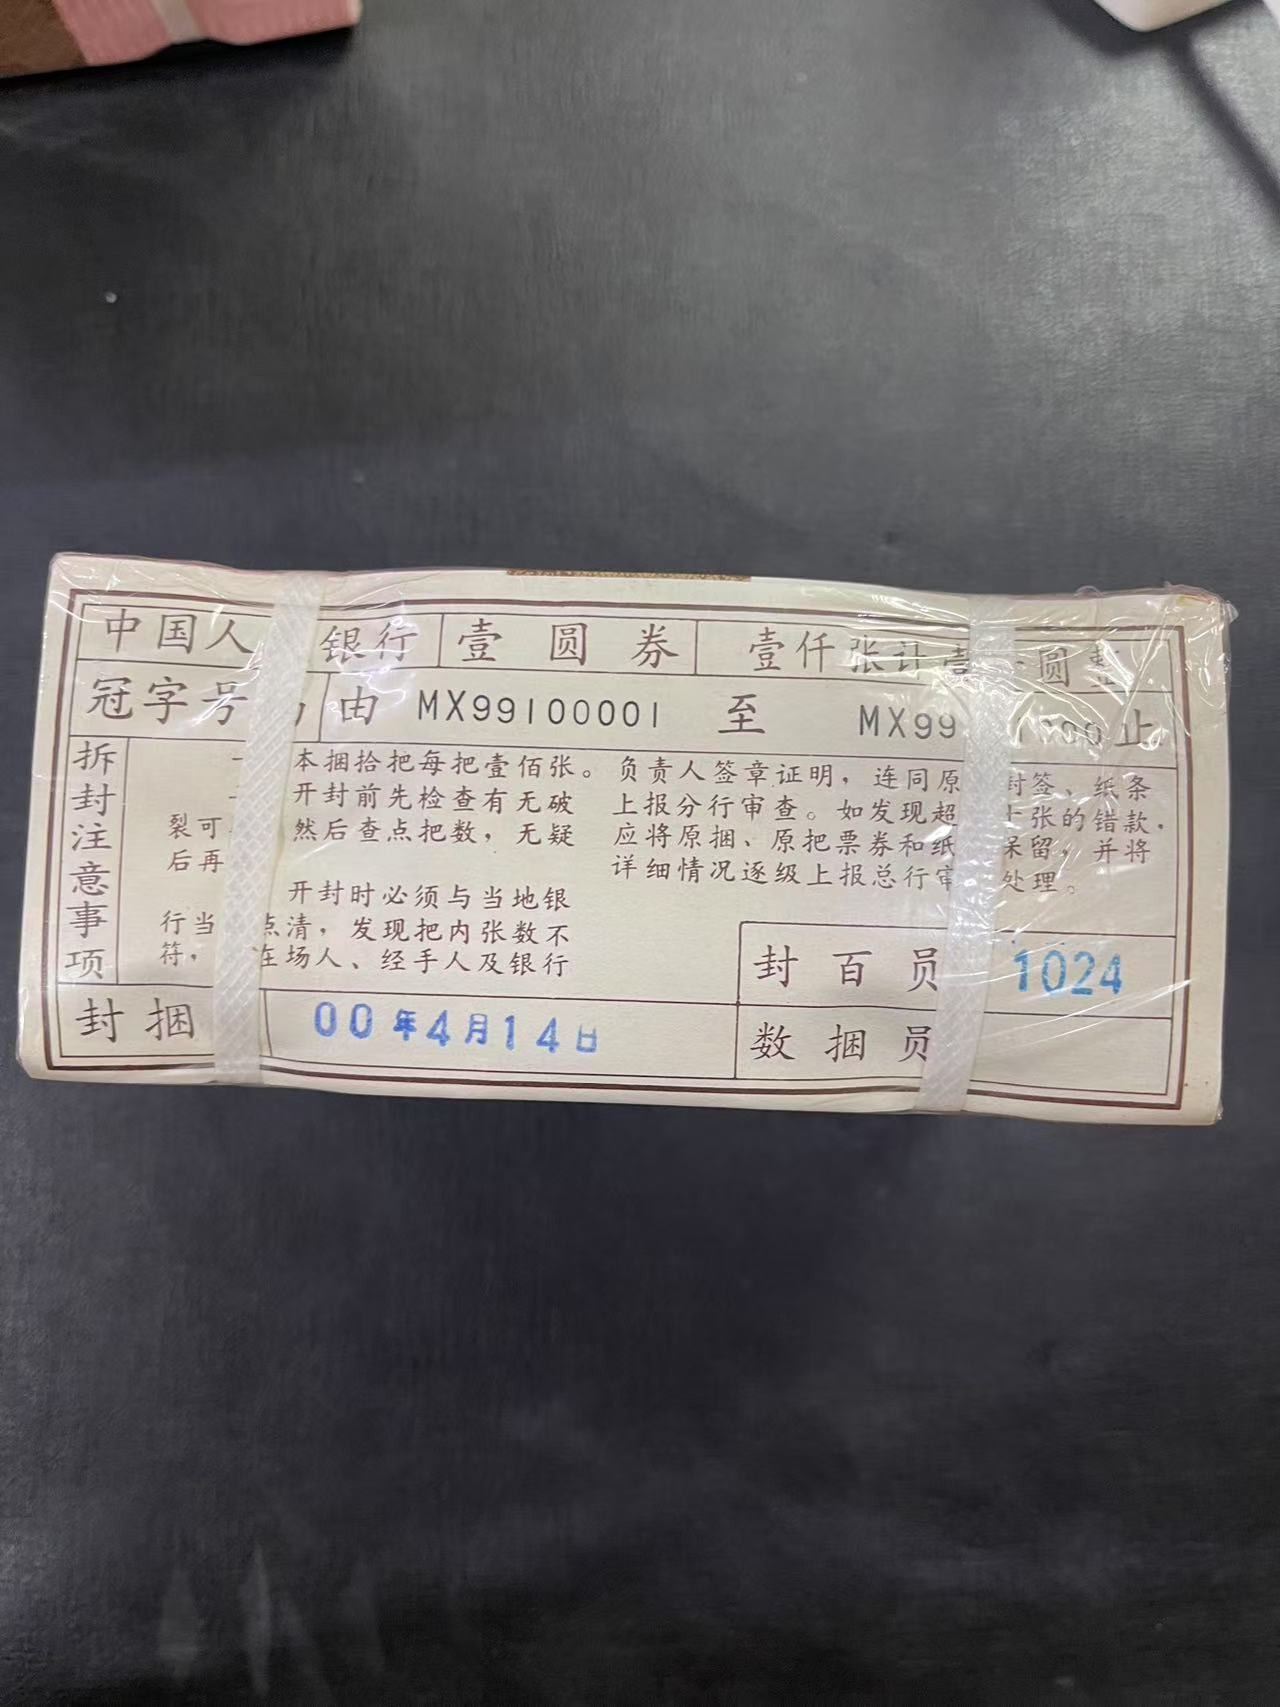 中国人 银行 壹圆券 壹仟张计壹 圆整
冠字号 由 MX99100001 至 MX99 1000止
拆封注意事项
一 本捆拾把每把壹佰张。
开封前先检查有无破
裂可 然后查点把数，无疑
后再
开封时必须与当地银
行当 点清，发现把内张数不
符， 在场人、经手人及银行
负责人签章证明，连同原 封签、纸条
上报分行审查。如发现超 十张的错款，
应将原捆、原把票券和纸 保留，并将
详细情况逐级上报总行审 处理。
封百员 1024
封捆 00年4月14日
数捆员